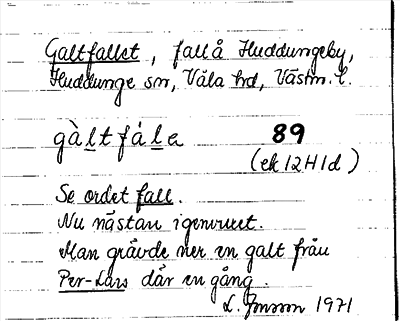 Galtfallet, fall å Huddungeby,
Huddunge sn, Våla hd, Västm. l.
gàltfàle 89
(ek 12H1d)
Se ordet fall.
Nu nästan igenvuxet.
Man grävde ner en galt från
Per-Lars där en gång.
L. Jonsson 1971